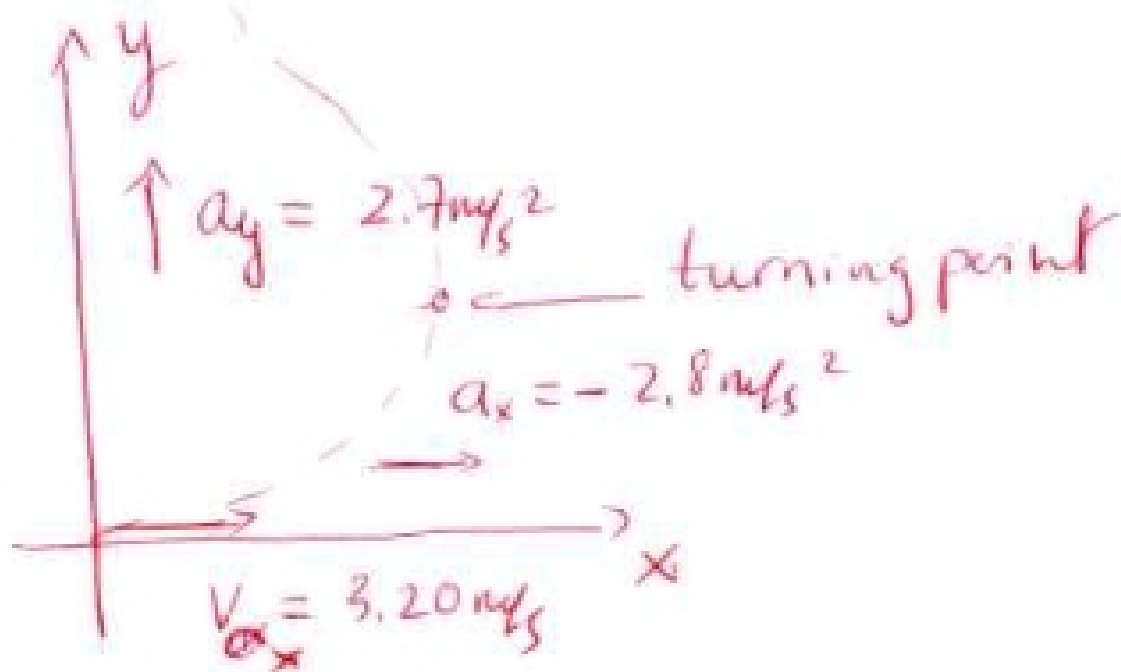 y
a_y = 2.7 m/s²
turning point
a_x = - 2.8 m/s²
x
V_{0x} = 3.20 m/s